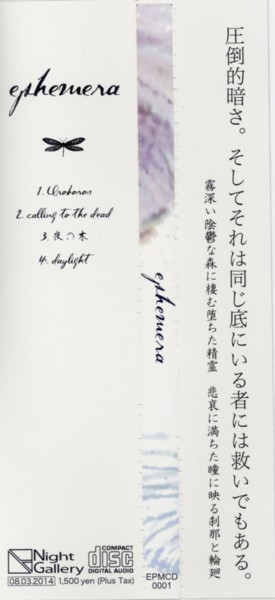 ephemera
1. Uroboros
2. calling to the dead
3. 夜の木
4. daylight
Night
Gallery
COMPACT
disc
DIGITAL AUDIO
08.03.2014
1,500 yen (Plus Tax)
ephemera
EPMCD
0001
圧倒的暗さ。そしてそれは同じ底にいる者には救いでもある。
霧深い陰鬱な森に棲む堕ちた精霊 悲哀に満ちた瞳に映る刹那と輪廻